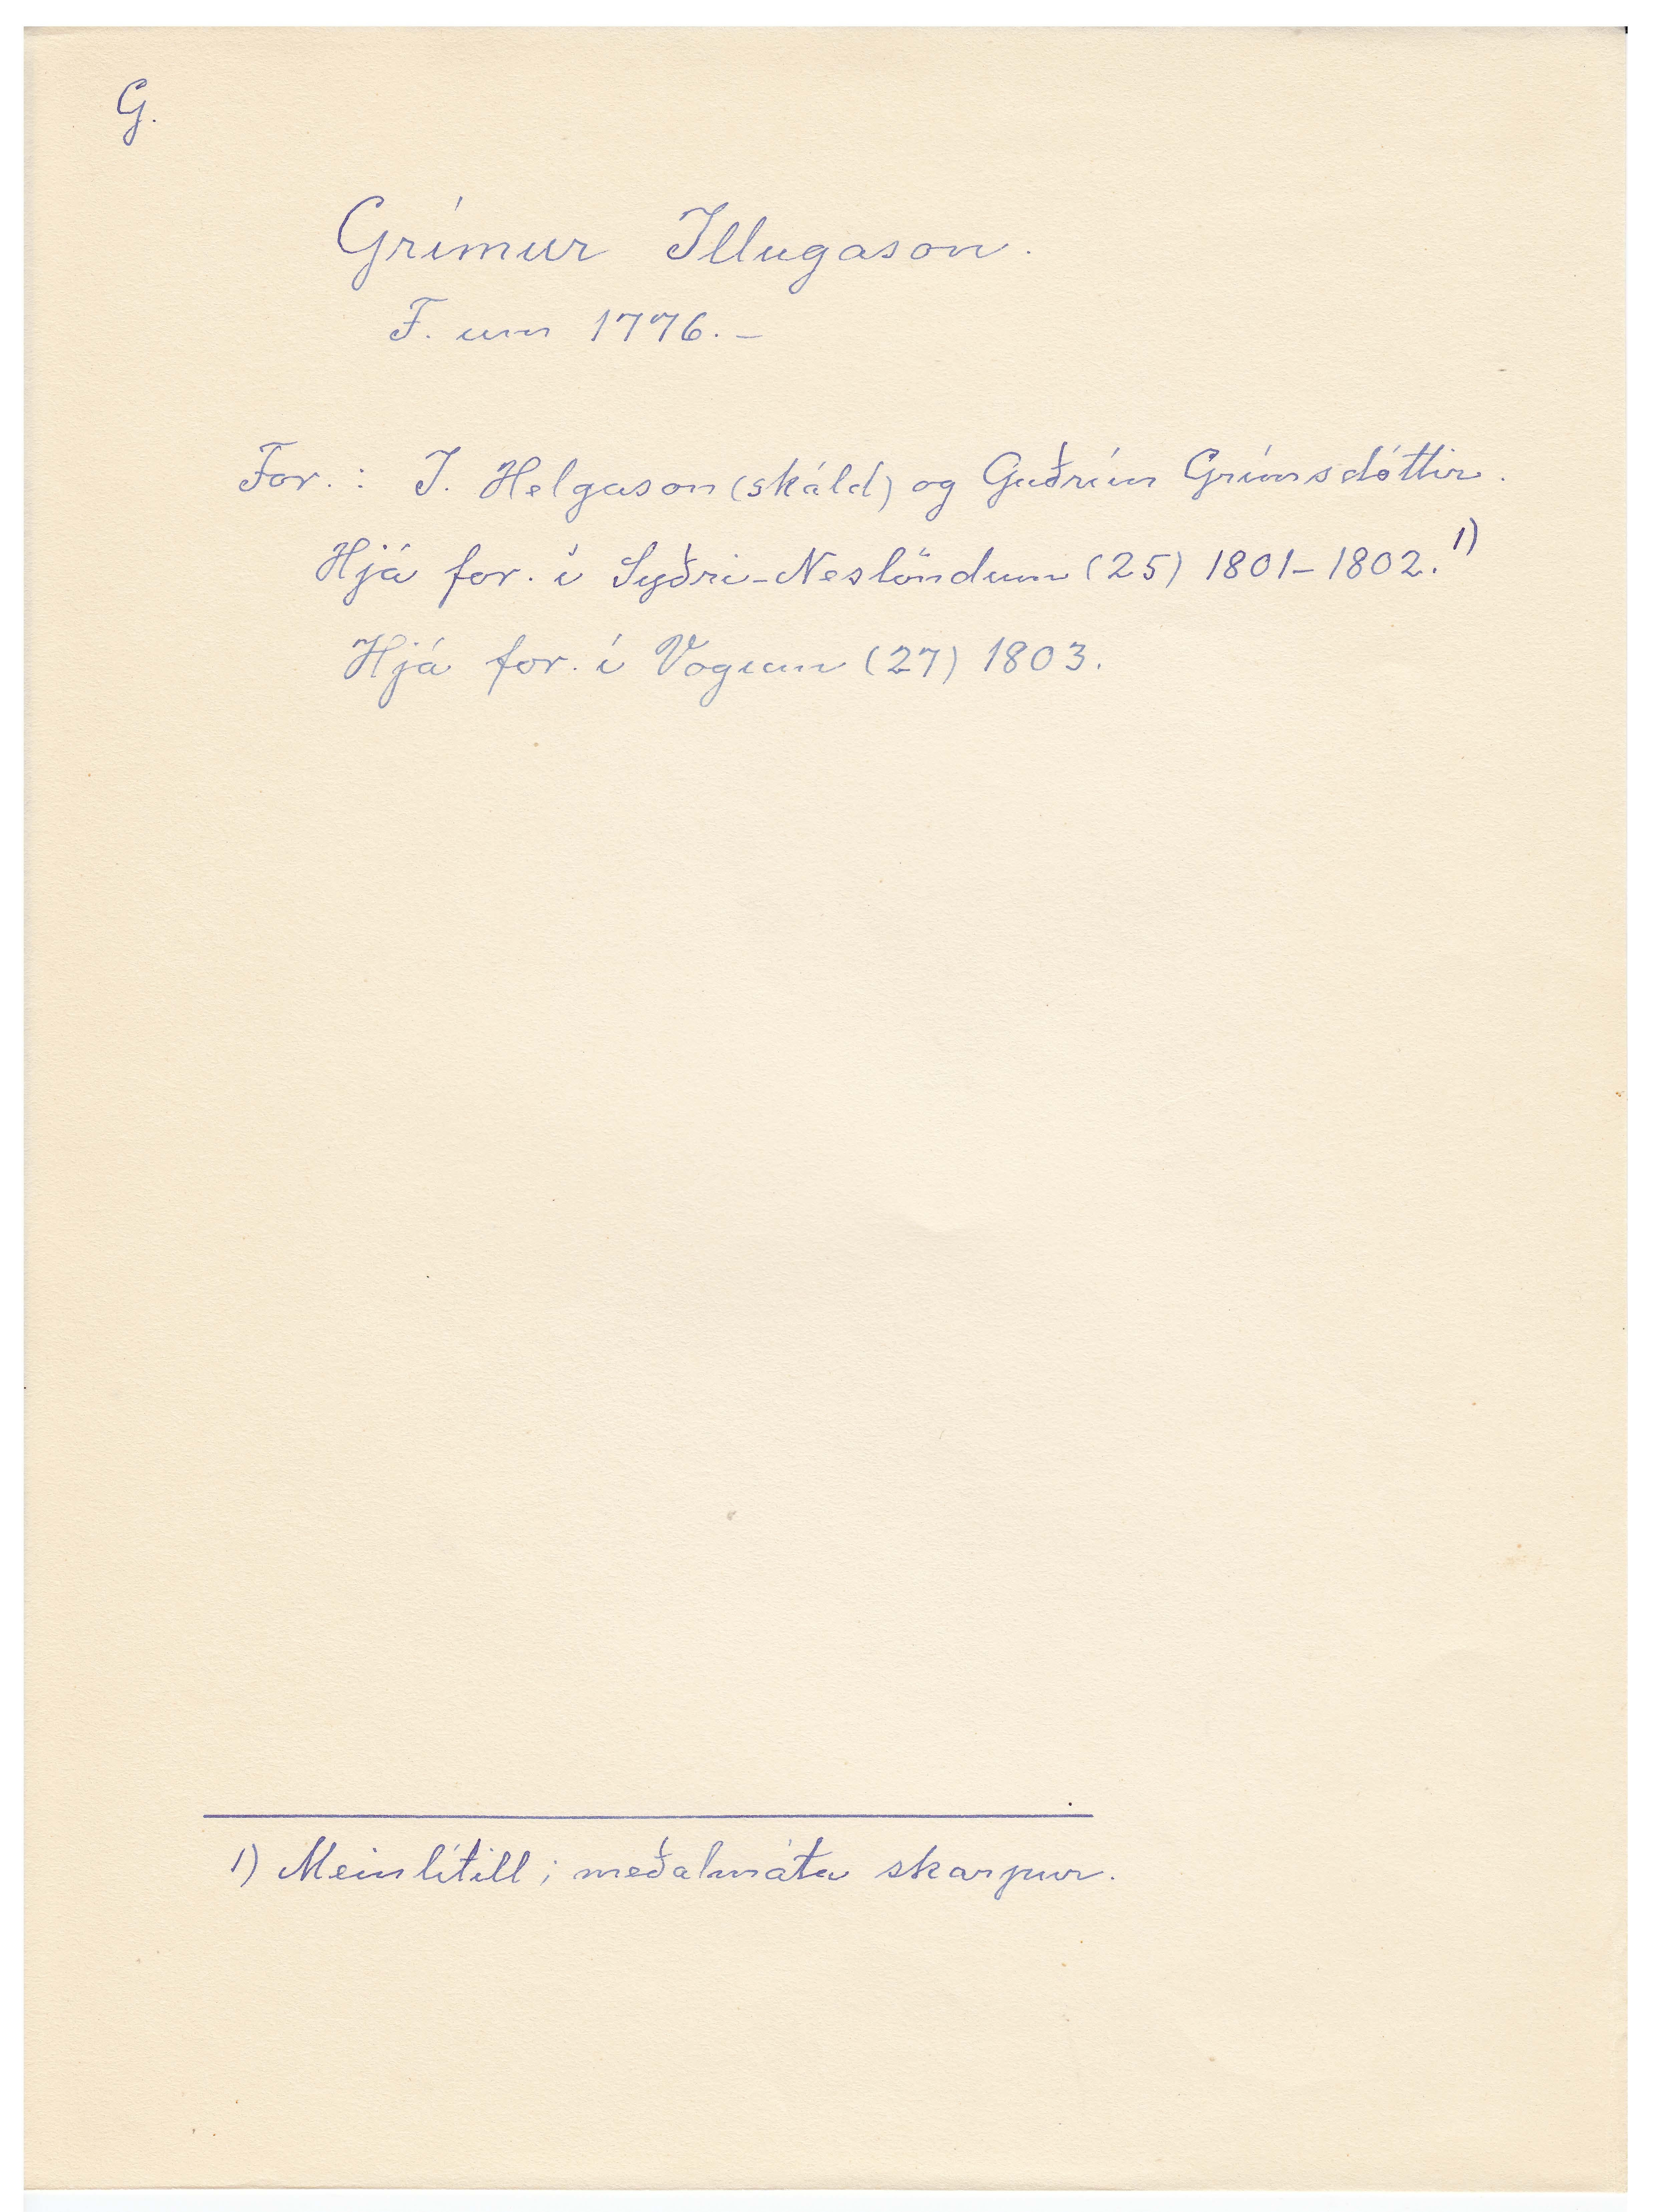 G.
Grímur Illugason.
F. um 1776. –
For.: I. Helgason (skáld) og Guðrún Grímsdóttir.
Hjá for. í Syðri-Neslöndum (25) 1801–1802. 1)
Hjá for. í Vogum (27) 1803.
1) Meinlítill; meðalmáta skarpur.